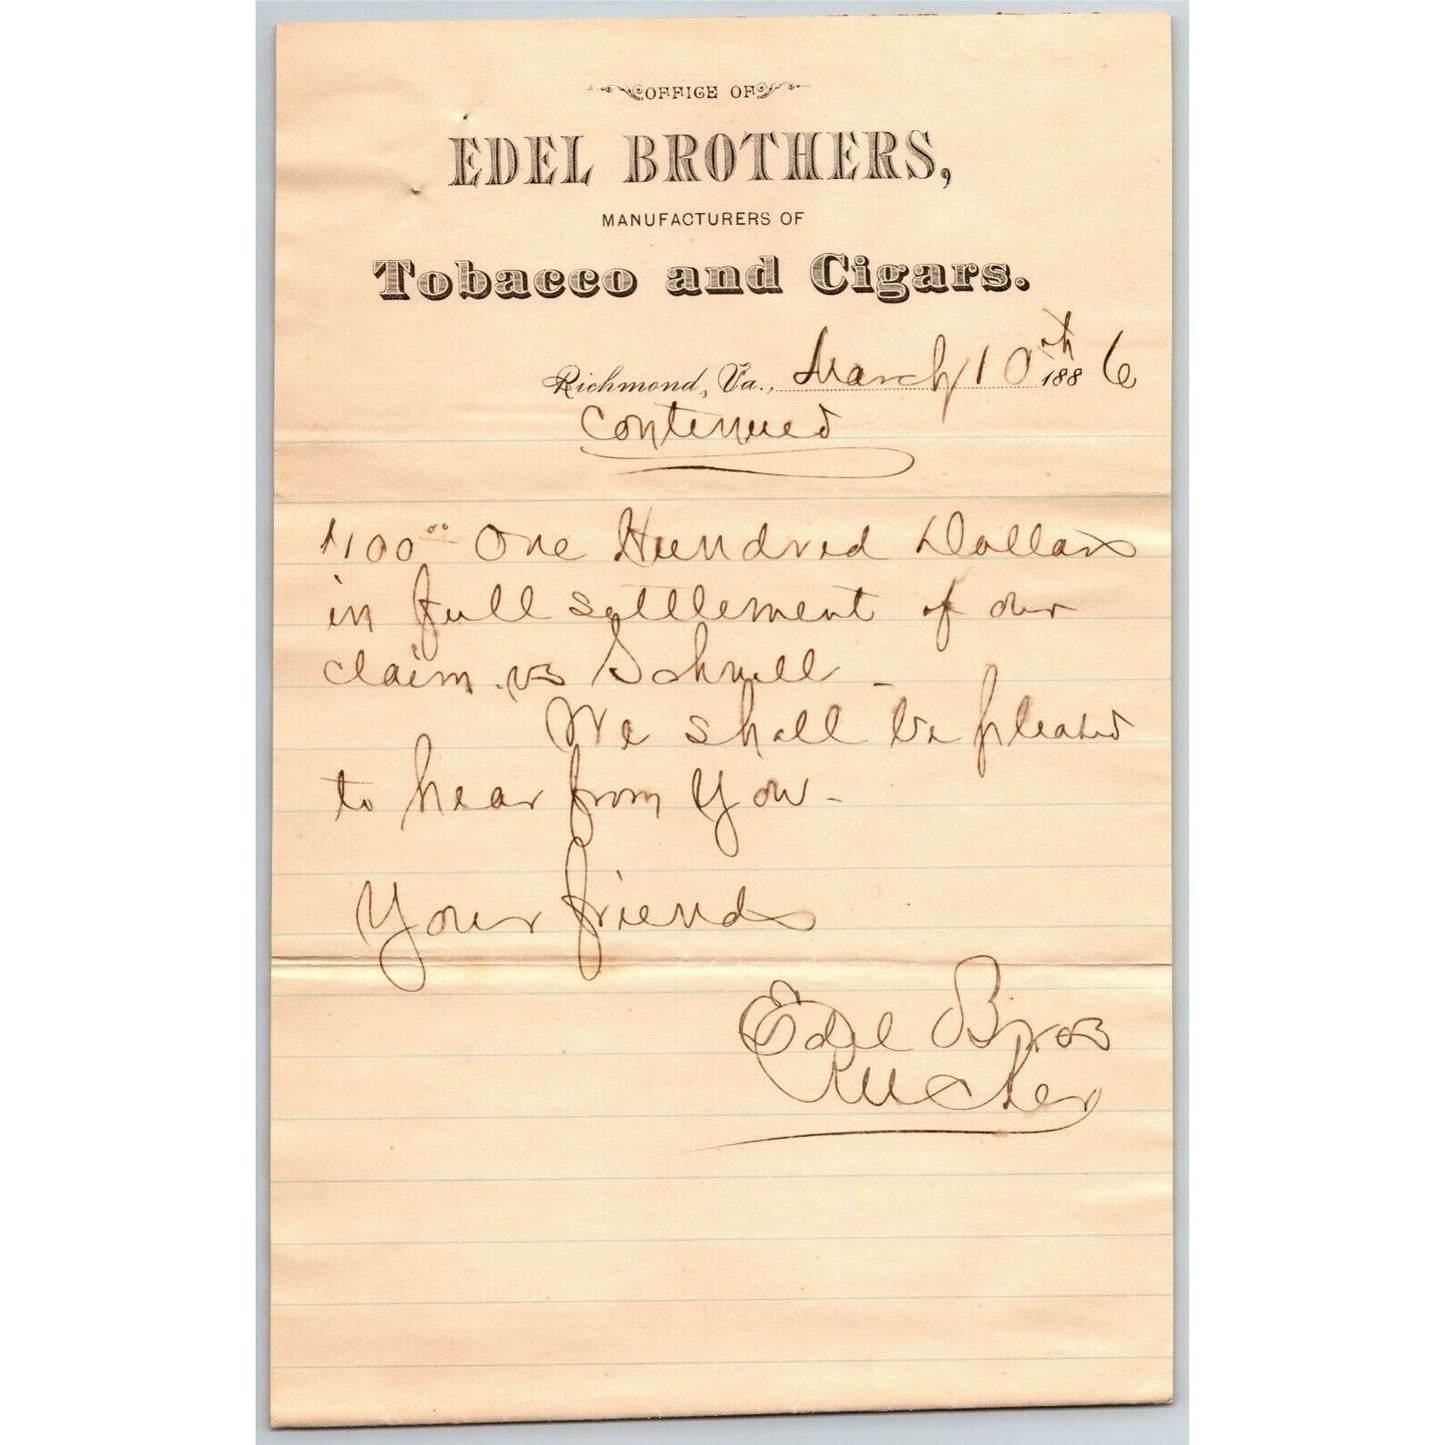 OFFICE OF
EDEL BROTHERS,
MANUFACTURERS OF
Tobacco and Cigars.
Richmond, Va., March 10th 1886
Contenued
$100.00 One Hundred Dollars
in full settlement of our
claim vs Schnell -
We shall be pleased
to hear from You -
Your friends
Edel Bros